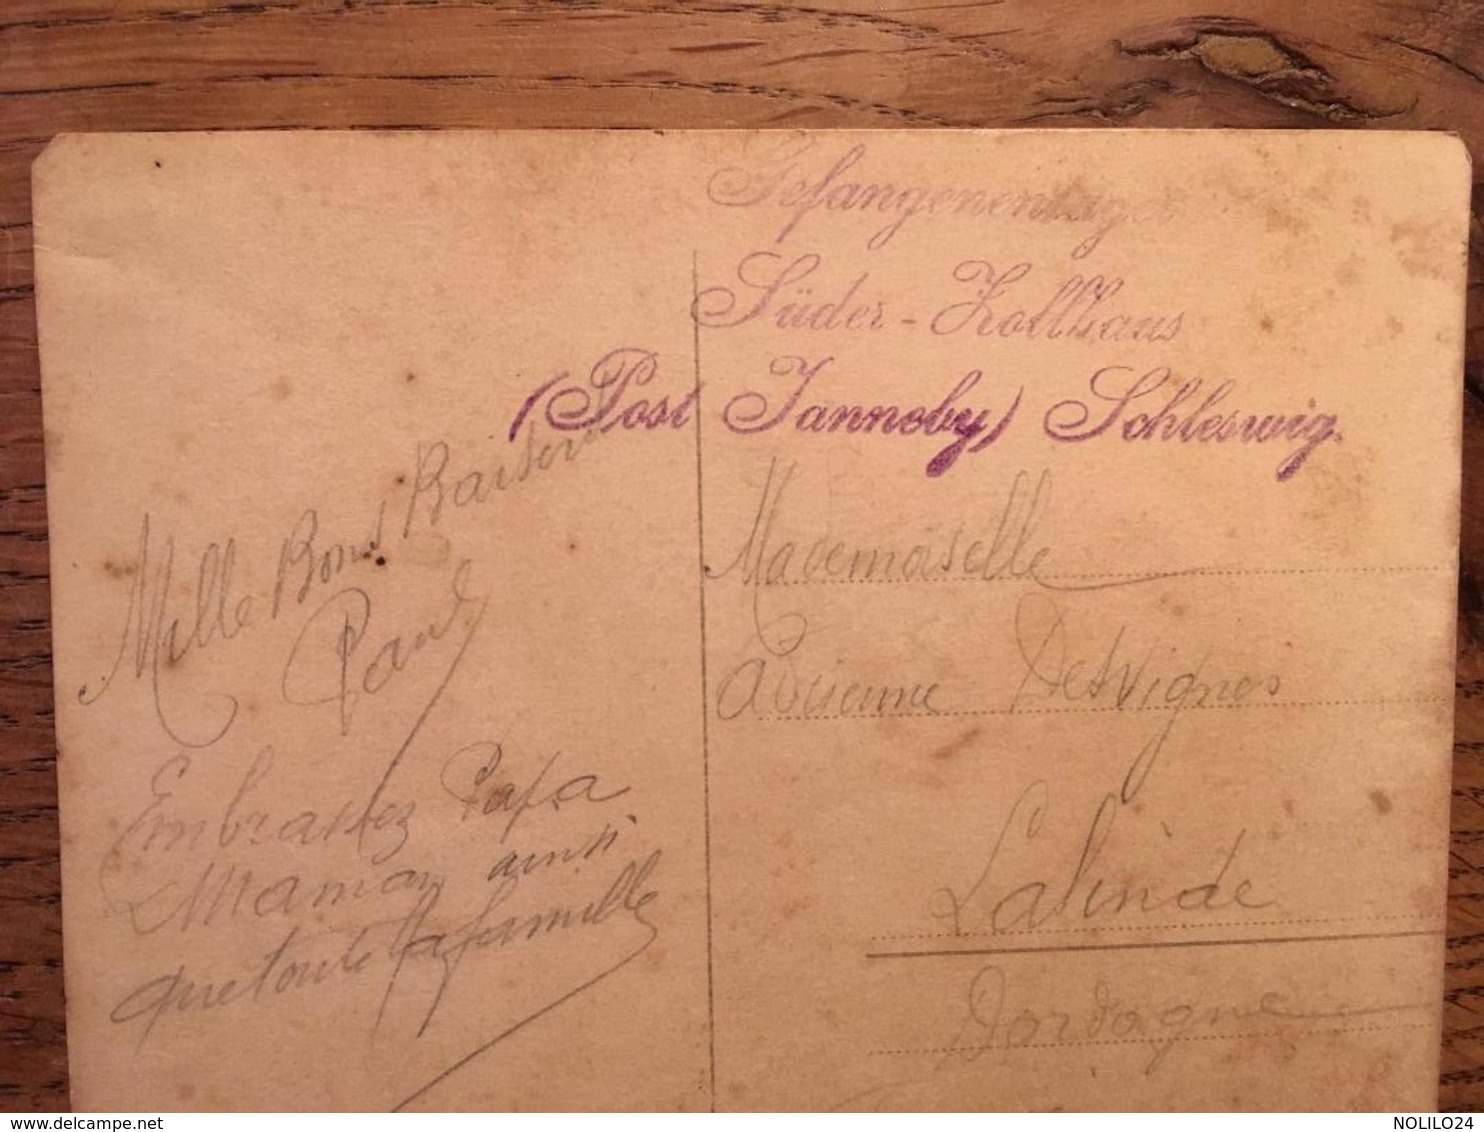 Gefangenenlager
Süder-Zollhaus
(Post Janneby) Schleswig.
Mille Bons Baisers
Paul
Embrassez Papa
Maman ainsi
que toute la famille
Mademoiselle
Adrienne Desvignes
Lalinde
Dordogne
NOLILO24